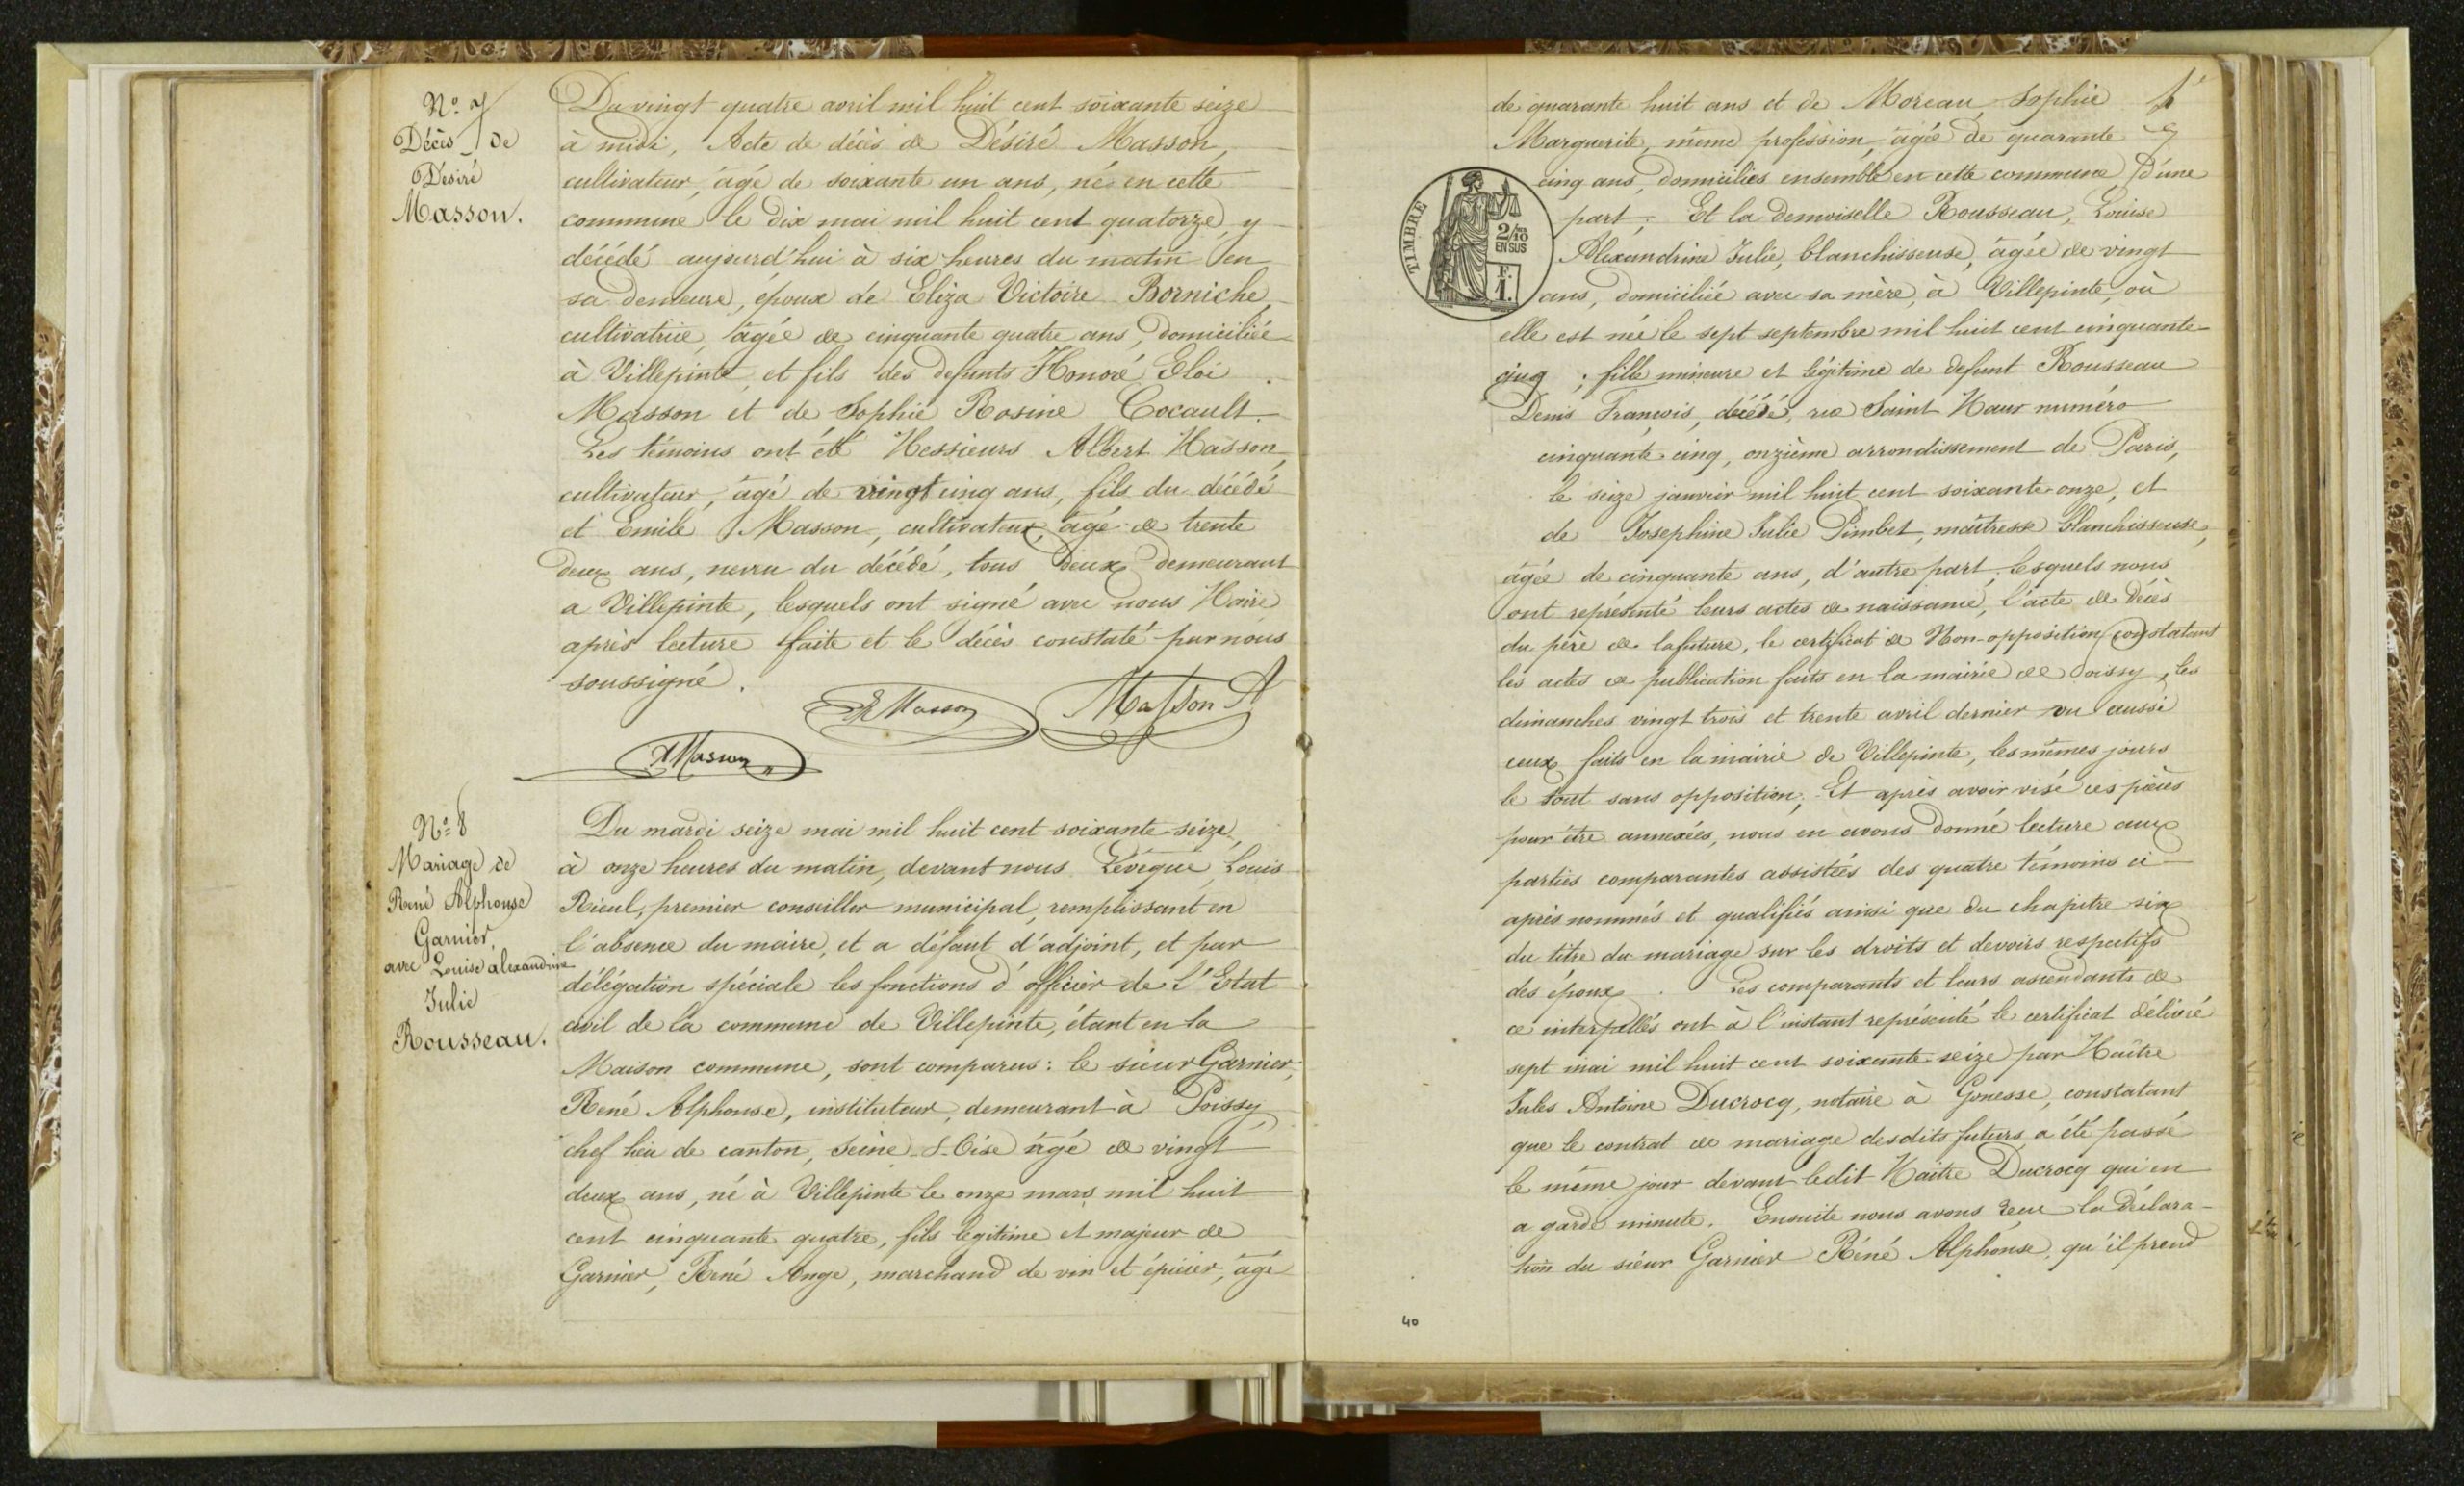 N° 7
Décès de
Désiré
Masson.
Du vingt quatre avril mil huit cent soixante seize
à midi, Acte de décès de Désiré Masson,
cultivateur, âgé de soixante un ans, né en cette
commune le dix mai mil huit cent quatorze, y
décédé aujourd'hui à six heures du matin en
sa demeure, époux de Eliza Victoire Borniche,
cultivatrice, âgée de cinquante quatre ans, domiciliée
à Villepinte, et fils des defunts Honoré Eloi
Masson et de Sophie Rosine Cocault.
Les témoins ont été Messieurs Albert Masson,
cultivateur, âgé de vingt cinq ans, fils du décédé
et Emile Masson, cultivateur, âgé de trente
deux ans, neveu du décédé, tous deux demeurant
a Villepinte, lesquels ont signé avec nous Maire
après lecture faite et le décès constaté par nous
soussigné.
E Masson
Masson A
Masson
N° 8
Mariage de
René Alphonse
Garnier,
avec Louise alexandrine
Julie
Rousseau.
Du mardi seize mai mil huit cent soixante-seize,
à onze heures du matin, devant nous Lévêque, Louis
Rieul, premier conseiller municipal, remplissant en
l'absence du maire, et a défaut d'adjoint, et par
délégation spéciale les fonctions d'officier de l'Etat
civil de la commune de Villepinte, étant en la
Maison commune, sont comparus : le sieur Garnier,
René Alphonse, instituteur, demeurant à Poissy,
chef lieu de canton, Seine-&-Oise âgé de vingt
deux ans, né à Villepinte le onze mars mil huit
cent cinquante quatre, fils légitime et majeur de
Garnier, René Ange, marchand de vin et épicier, âgé
de quarante huit ans et de Moreau, Sophie
Marguerite, même profession, âgée de quarante
cinq ans, domiciliés ensemble en cette commune, d'une
part ; Et la demoiselle Rousseau, Louise
Alexandrine Julie, blanchisseuse, âgée de vingt
ans, domiciliée avec sa mère, à Villepinte, où
TIMBRE
2/10
EN SUS
F.
1.
elle est née le sept septembre mil huit cent cinquante
cinq ; fille mineure et légitime de defunt Rousseau
Denis François, décédé, rue Saint Maur numéro
cinquante-cinq, onzième arrondissement de Paris,
le seize janvier mil huit cent soixante-onze, et
de Josephine Julie Pimbet, maîtresse blanchisseuse,
âgée de cinquante ans, d'autre part ; lesquels nous
ont représenté leurs actes de naissance, l'acte de décès
du père de la future, le certificat de Non-opposition constatant
les actes de publication faits en la mairie de Poissy, les
dimanches vingt trois et trente avril dernier vu aussi
ceux faits en la mairie de Villepinte, les mêmes jours
le tout sans opposition ; Et après avoir visé ces pièces
pour être annexées, nous en avons donné lecture aux
parties comparantes assistées des quatre témoins ci-
après nommés et qualifiés ainsi que du chapitre six
du titre du mariage sur les droits et devoirs respectifs
des époux. Les comparants et leurs ascendants de
ce interpellés ont à l'instant représenté le certificat délivré
sept mai mil huit cent soixante seize par Maître
Jules Antoine Ducrocq, notaire à Gonesse, constatant
que le contrat de mariage desdits futurs a été passé
le même jour devant ledit Maître Ducrocq qui en
a gardé minute. Ensuite nous avons reçu la déclara-
tion du sieur Garnier Réné Alphonse, qu'il prend
40